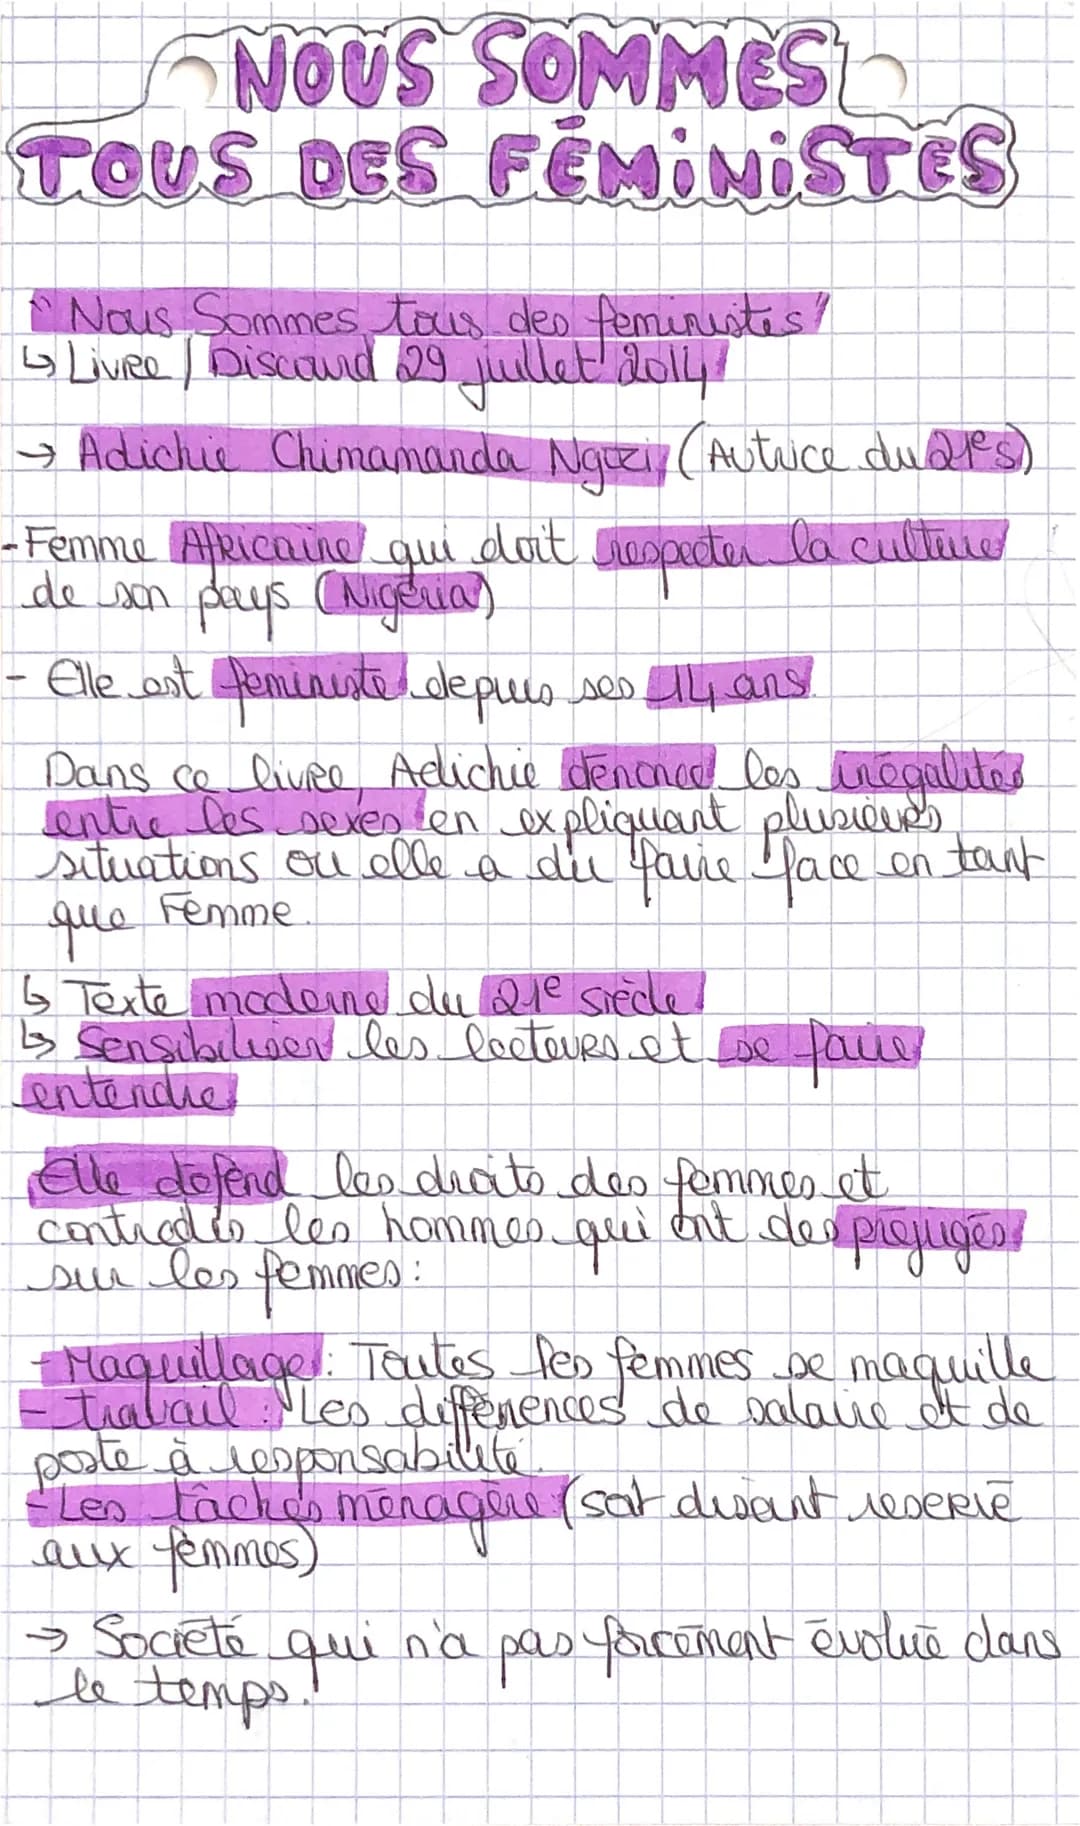 NOUS SOMMES
TOUS DES FÉMINISTES
"Nous Sommes tous des feministes"
↳ Livre / Discourd 29 juillet 2014
→ Adichie Chimamanda Ngozi (Autrice du 21es)
- Femme Africaine qui doit respecter la culture
de son pays (Nigéria)
- Elle est feministe depuis ses 14 ans.
Dans ce livre, Adichie dénonce les inégalités
entre les sexes en expliquant plusieurs
situations ou elle a du faire face en tant
que Femme.
↳ Texte moderne du 21e siècle
↳ Sensibiliser les lecteurs et se faire
entendre
Elle défend les droits des femmes et
contredis les hommes qui ont des préjugés
sur les femmes :
- Maquillage : Toutes les femmes se maquille
- travail : Les différences de salaire et de
poste à responsabilité.
- Les tâches ménagère (soit disant reservé
aux femmes)
→ Société qui n'a pas forcément évolué dans
le temps.